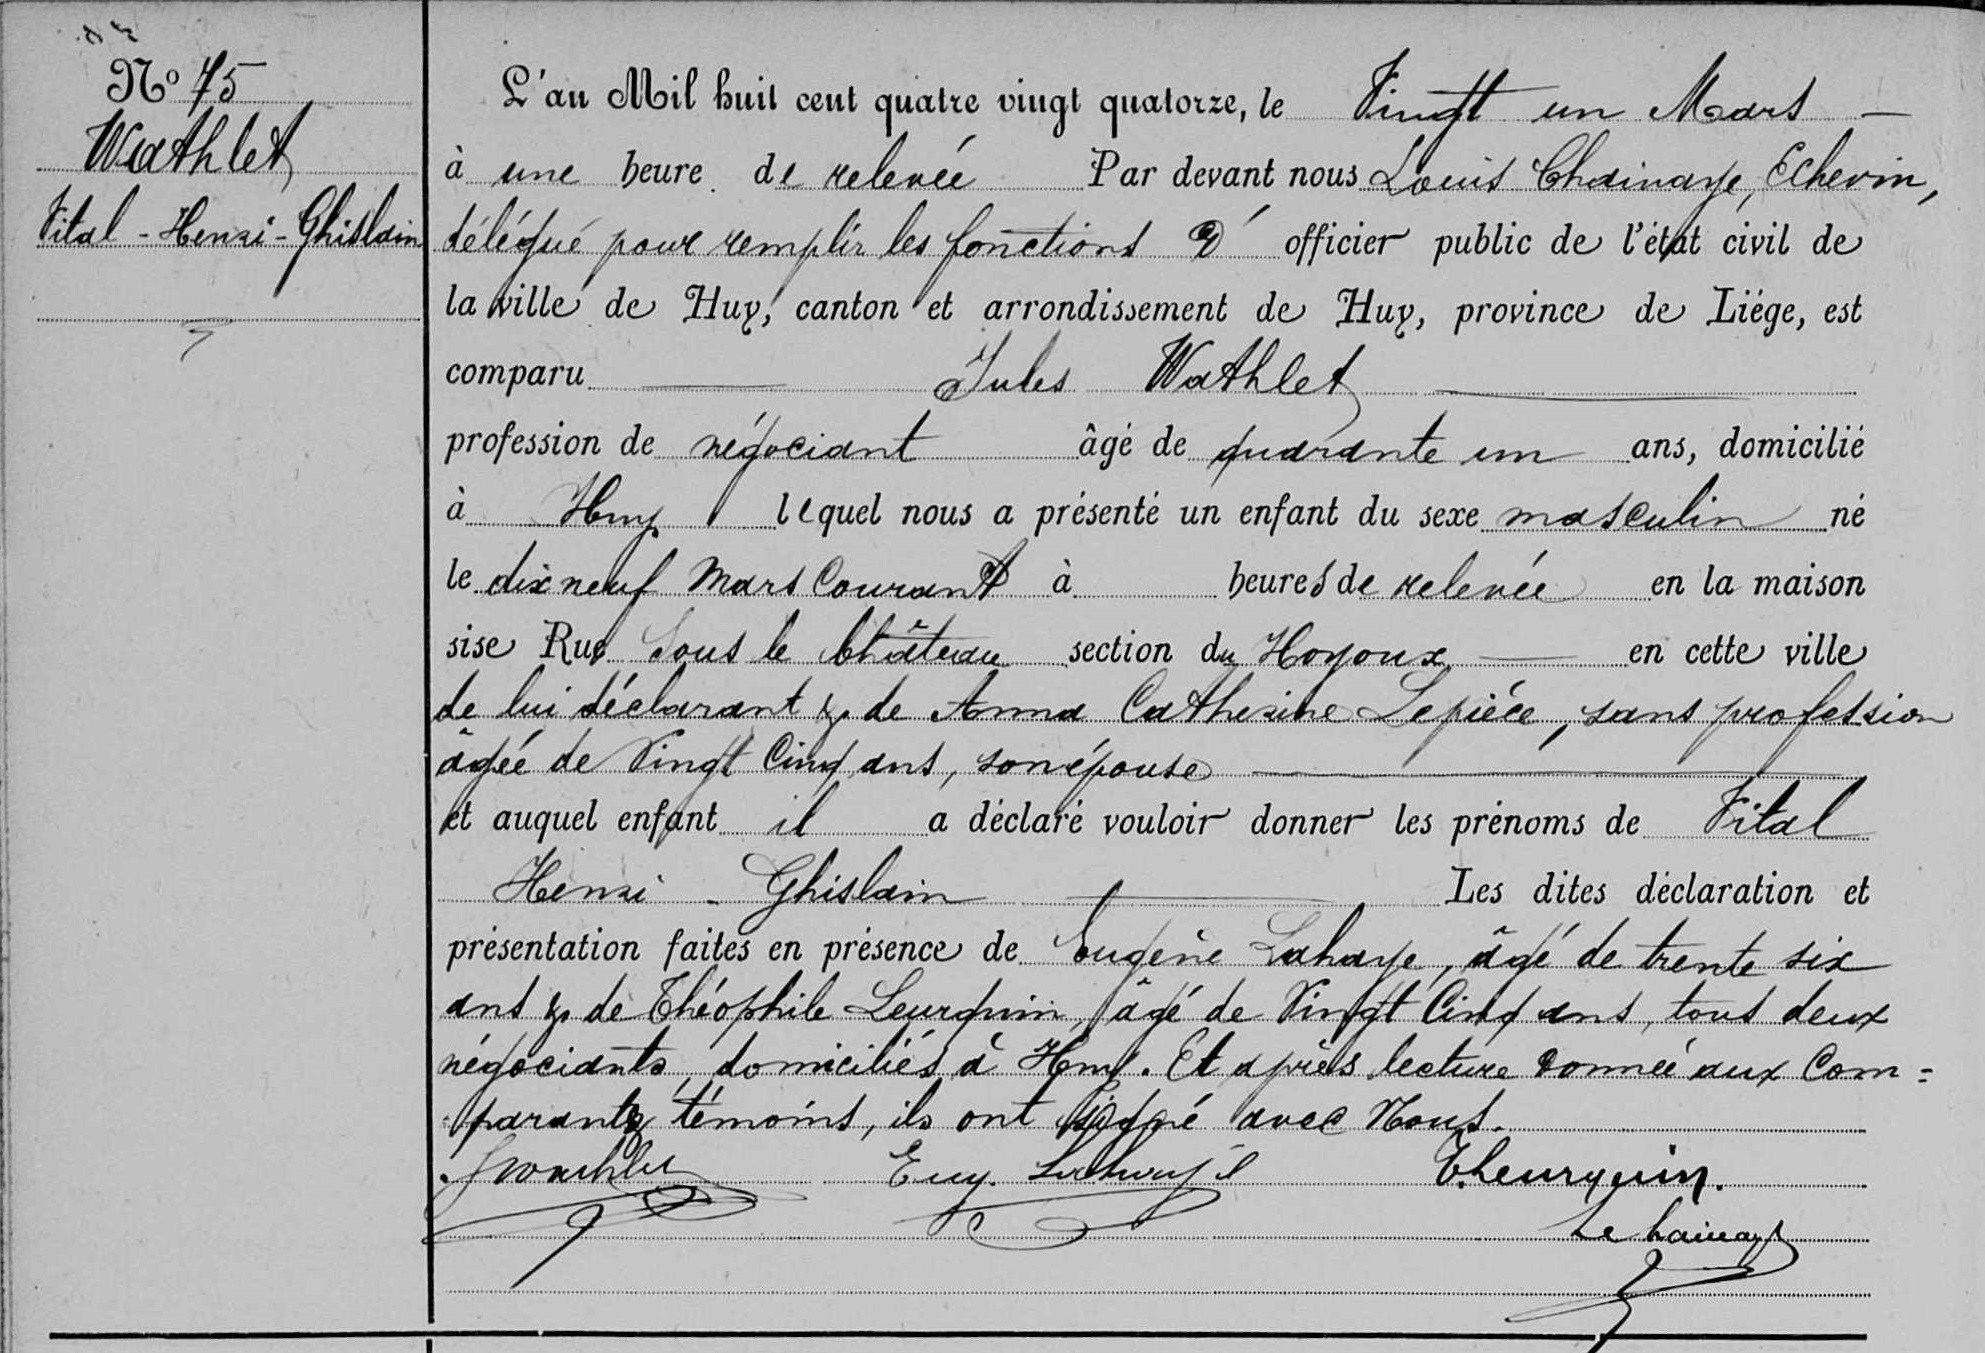 Nº 75
Wathlet
Vital - Henri - Ghislain
L'an Mil huit cent quatre vingt quatorze, le Vingt un Mars —
à une heure de relevée Par devant nous Louis Chainaye, Echevin,
délégué pour remplir les fonctions D' officier public de l'état civil de
la ville de Huy, canton et arrondissement de Huy, province de Liége, est
comparu — Jules Wathlet —
profession de négociant âgé de quarante un ans, domicilié
à Huy lequel nous a présenté un enfant du sexe masculin né
le dix neuf Mars Courant à heures de relevée en la maison
sise Rue Sous le Château section du Hoyoux — en cette ville
de lui déclarant & de Anna Catherine Lepièce, sans profession
âgée de Vingt Cinq ans, son épouse —
et auquel enfant il a déclaré vouloir donner les prénoms de Vital
Henri - Ghislain — Les dites déclaration et
présentation faites en présence de Eugène Lahaye, âgé de trente six
ans & de Théophile Leurquin, âgé de Vingt Cinq ans, tous deux
négociants, domiciliés à Huy. Et après lecture donnée aux Com=
parants témoins, ils ont signé avec Nous.
JWathlet Eug. Lahaye T. Leurquin.
L Chainaye